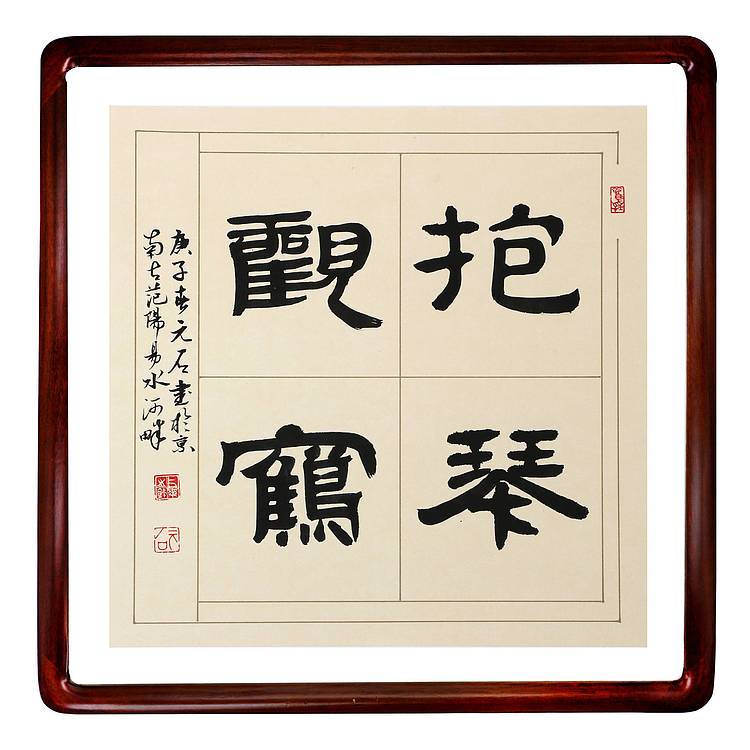 抱琴
觀鶴
庚子春元石書於京
南古范陽易水河畔